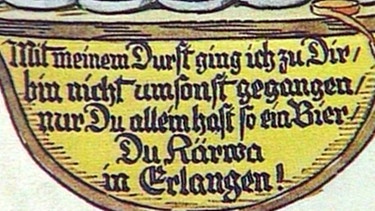 Mit meinem Durst ging ich zu Dir/
bin nicht umsonst gegangen/
nur Du allein hast so ein Bier/
Du Kärwa
in Erlangen!